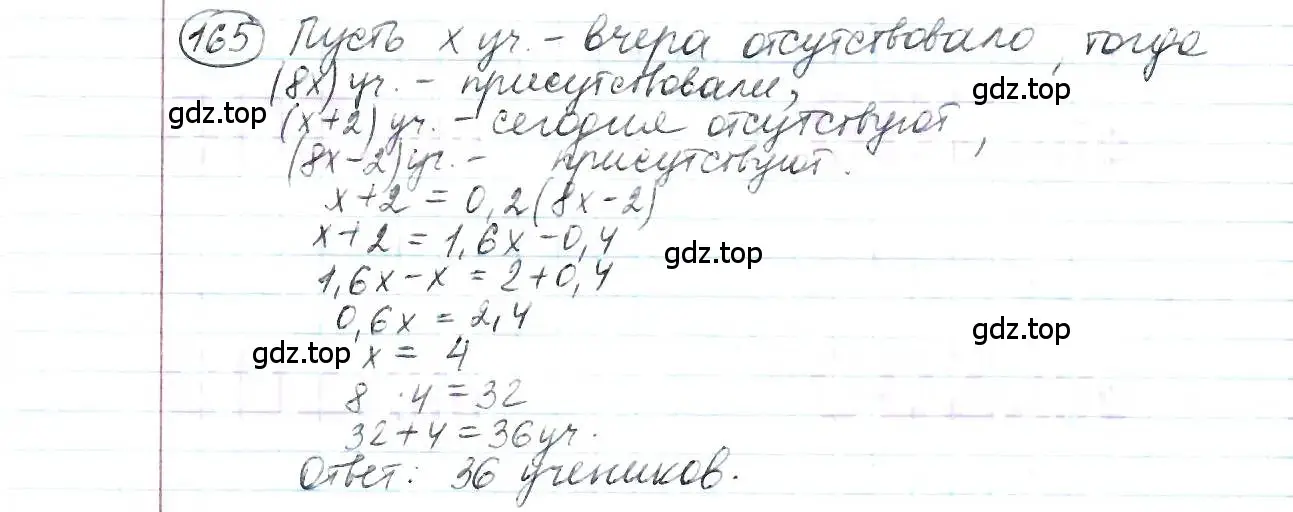 165 Пусть x уч. – вчера отсутствовало, тогда
(8x) уч. – присутствовали,
gdz.top
gdz.top
(x+2) уч. – сегодня отсутствуют,
(8x-2) уч. – присутствуют.
x+2 = 0,2(8x-2)
x+2 = 1,6x-0,4
gdz.top
1,6x-x = 2+0,4
0,6x = 2,4
gdz.top
gdz.top
x = 4
8 · 4 = 32
32+4 = 36 уч.
Ответ: 36 учеников.